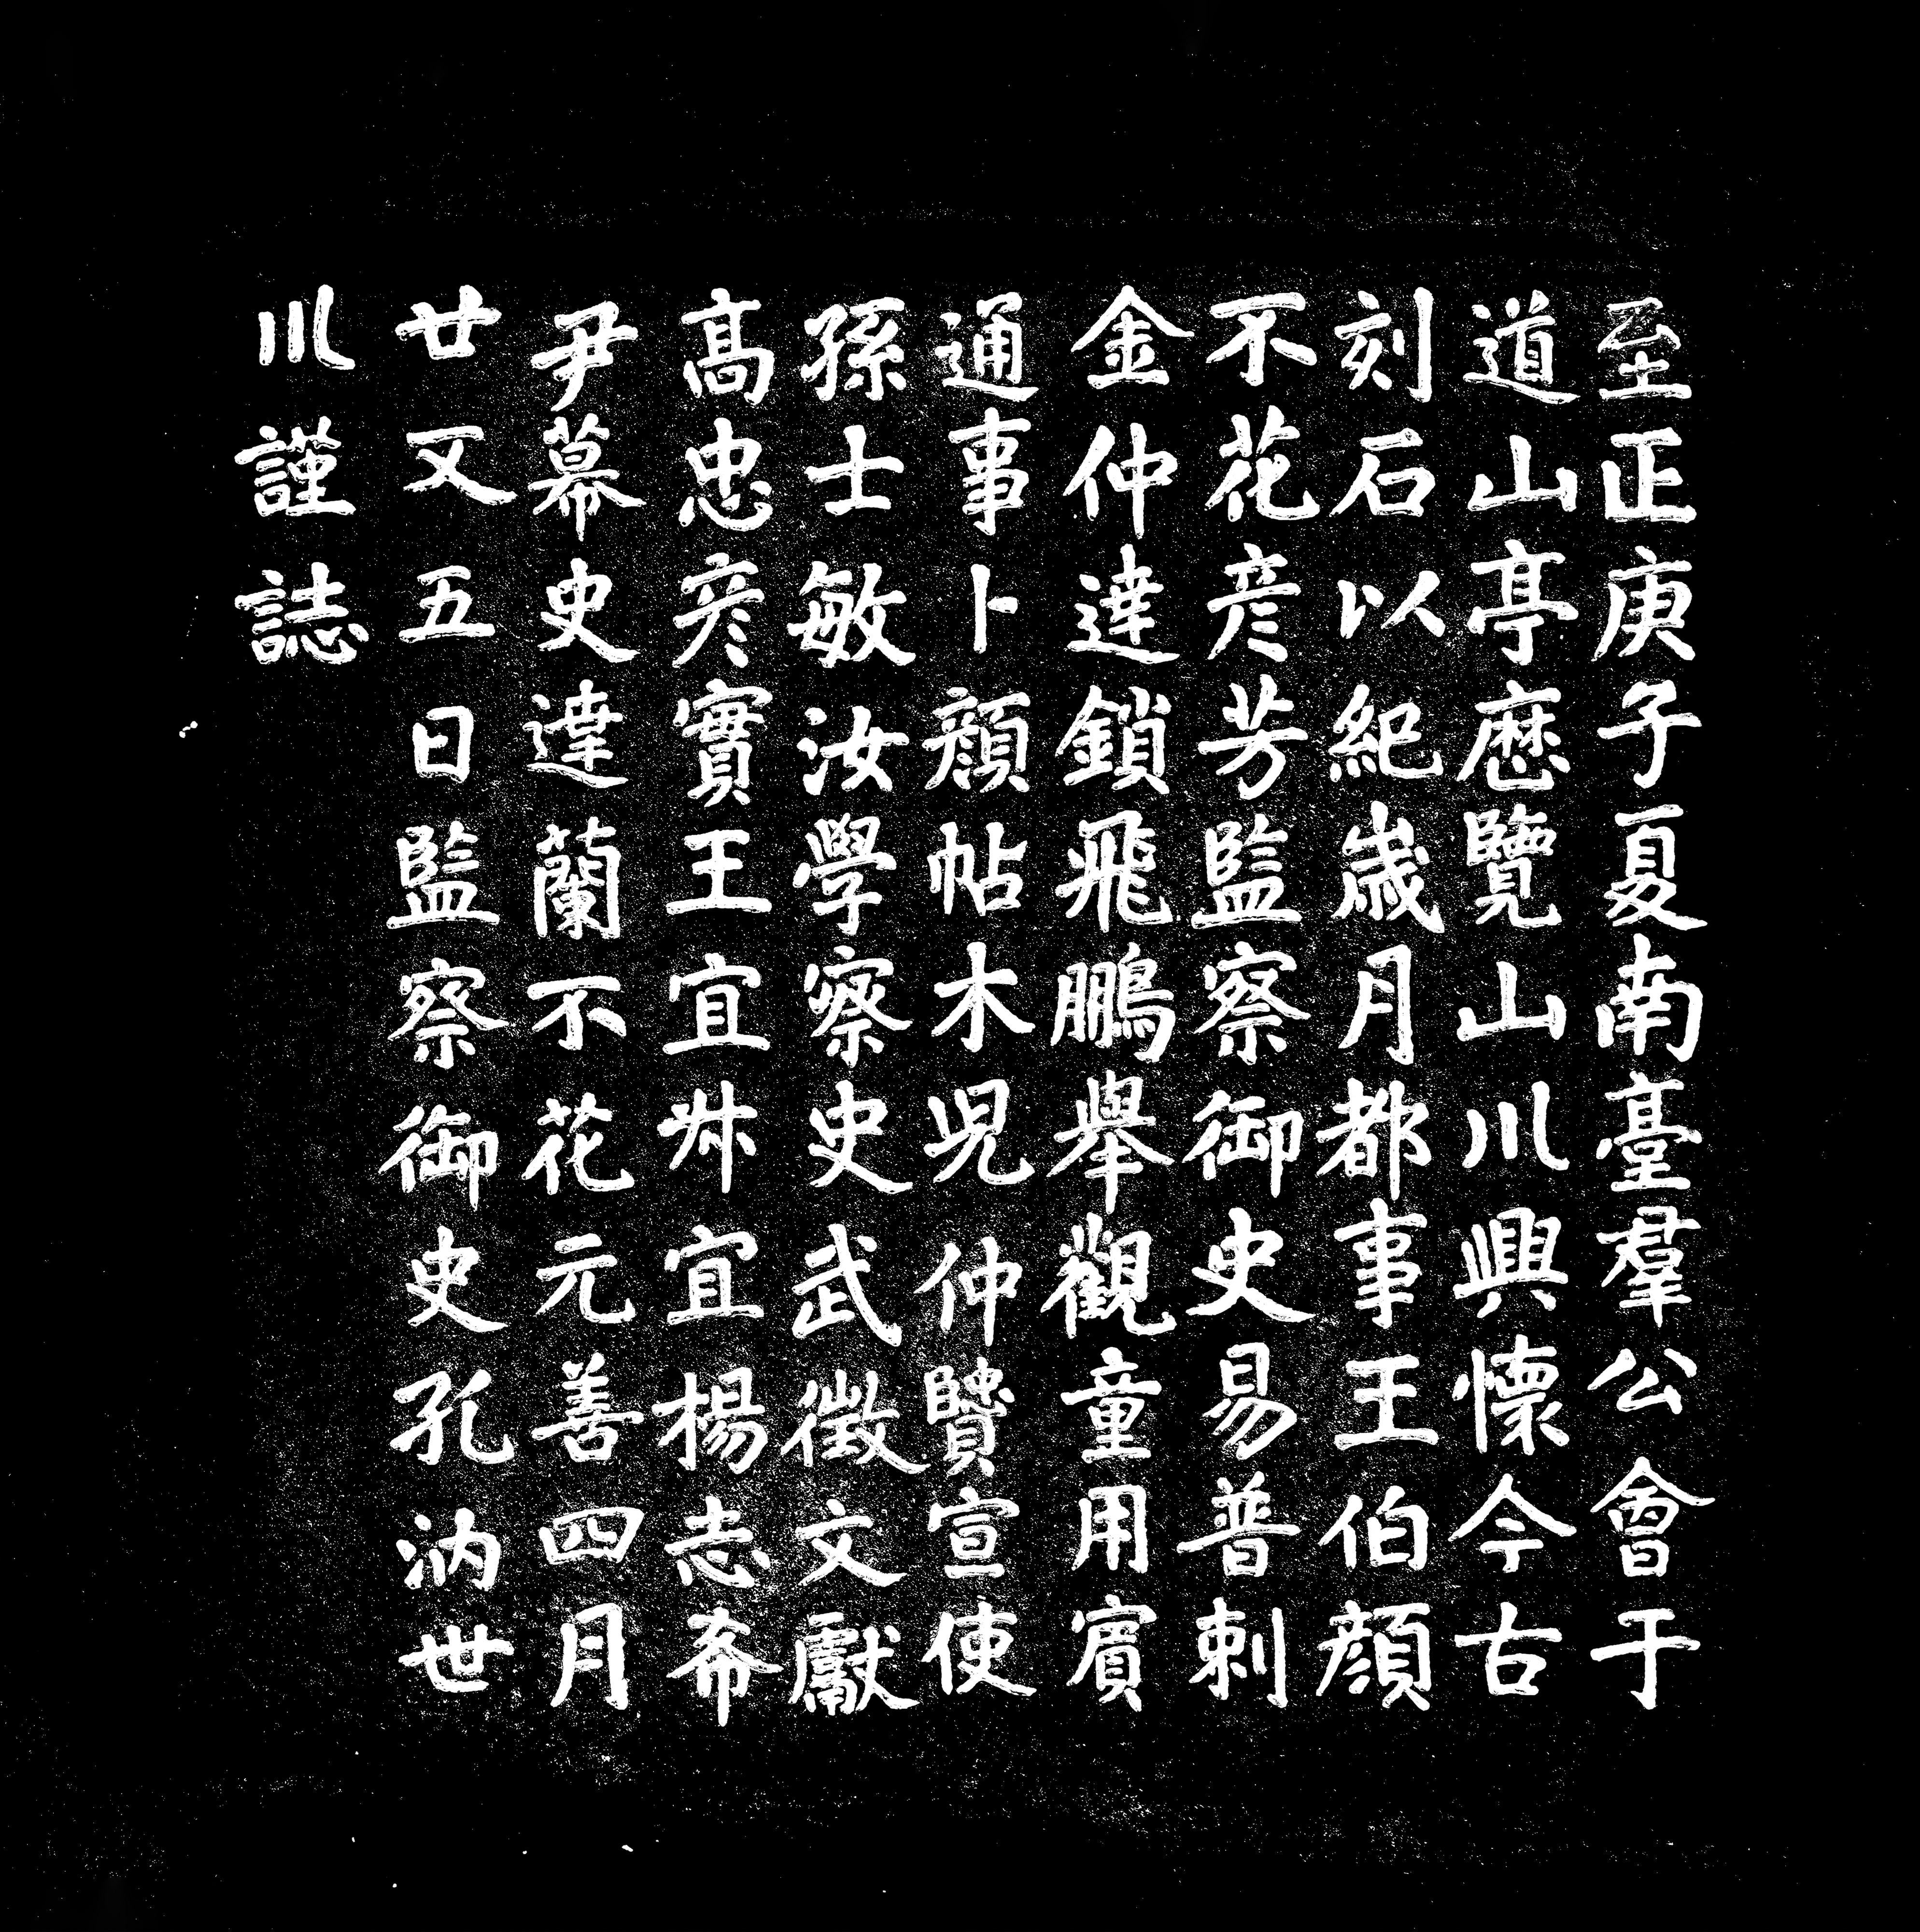 至正庚子夏南臺羣公會于
道山亭歷覽山川興懷今古
刻石以紀歲月都事王伯顏
不花彥芳監察御史易普剌
金仲達鎖飛鵬舉觀童用賓
通事卜顏帖木児仲贒宣使
孫士敏汝學察史武徵文獻
髙忠彥實王宜叔宜楊志希
尹幕史達蘭不花元善四月
廿又五日監察御史孔汭世
川謹誌